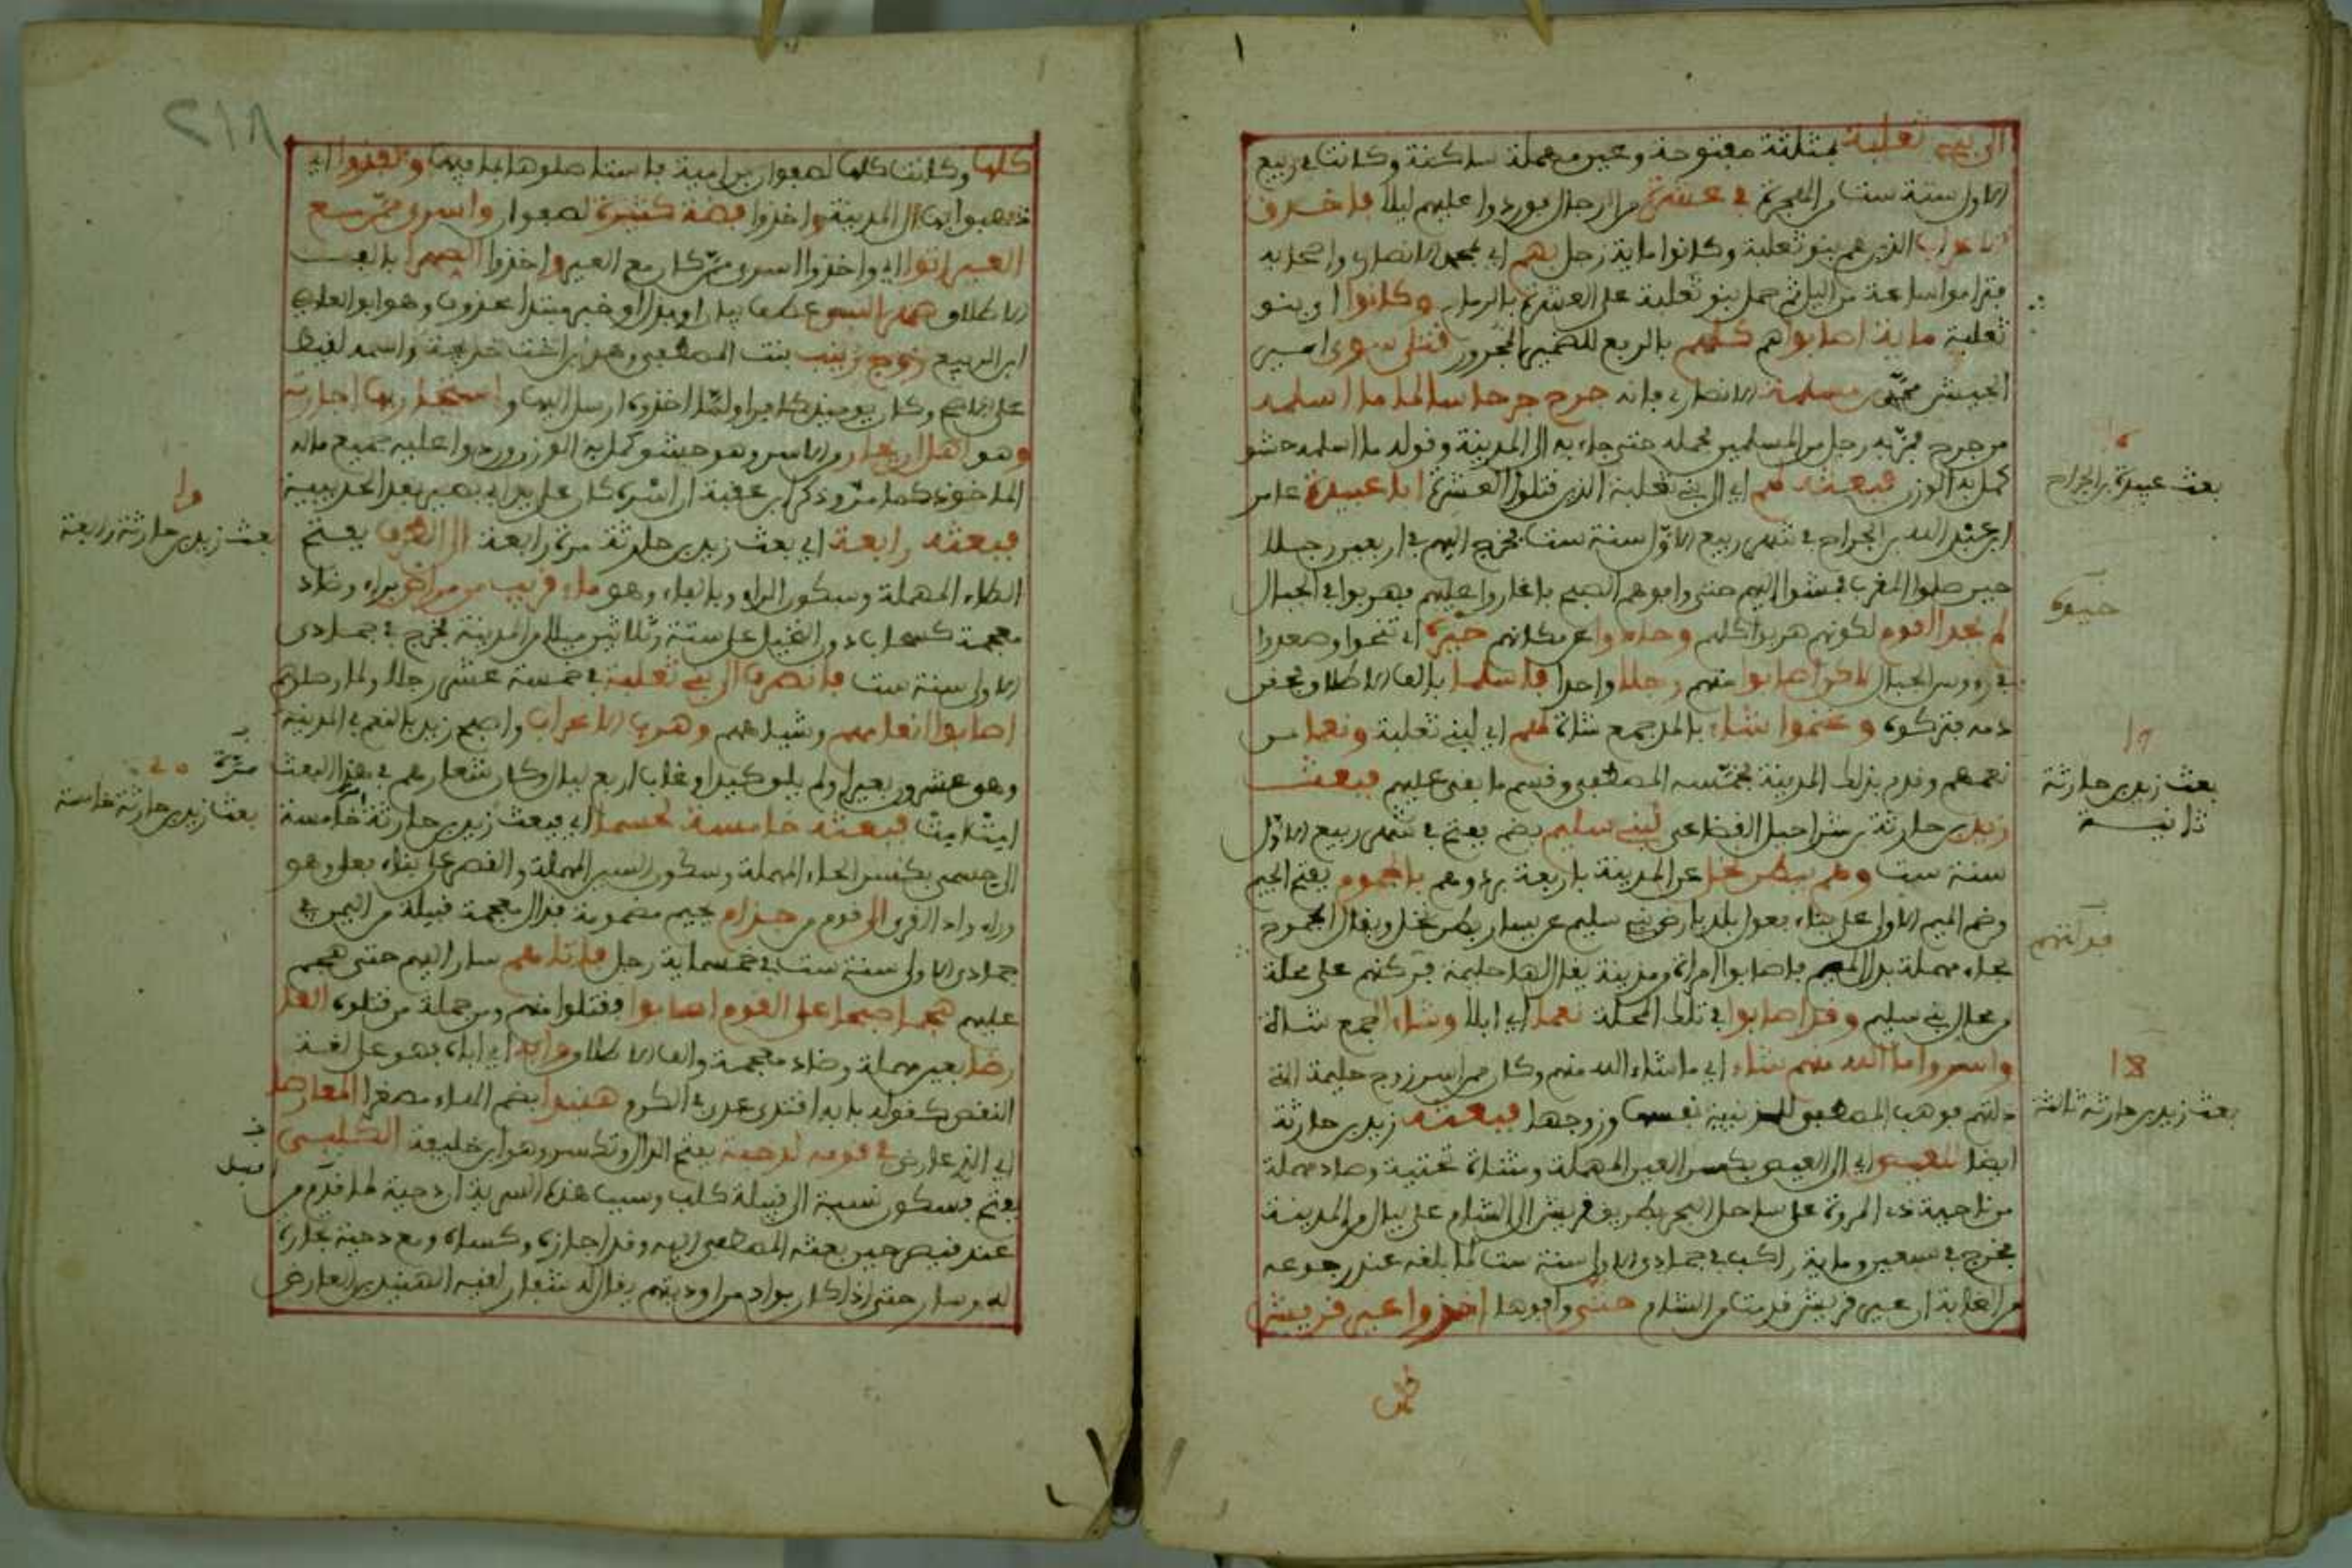 الى بني ثعلبة بمثلثة مفتوحة وعين مهملة ساكنة وكانت في ربيع
الاول سنة ست من الهجرة في عشرة من الرجال فوردوا عليهم ليلا فاحدق
الاعراب الذين هم بنو ثعلبة وكانوا ماية رجل بهم اي بمحمد الانصاري واصحابه
فتراموا ساعة من الليل ثم حمل بنو ثعلبة على العشرة بالرماح وكانوا اي بنو
ثعلبة ماية اصابوا هم كلهم بالرفع للضمير المجرور قتلى سوى امير
الجيش محمد بن مسلمة الانصاري فانه جرح جرحا سالما ما اسلمه
من جرح فمر به رجل من المسلمين فحمله حتى جاء به الى المدينة وقوله ما اسلمه حشو
كمل به الوزن فبعثه لهم اي الى بني ثعلبة الذين قتلوا العشرة ابا عبيدة عامر
ابن عبد الله بن الجراح في شهر ربيع الاول سنة ست فخرج اليهم في اربعين رجلا
حين صلوا المغرب فمشوا اليهم حتى وافوهم الصبح فاغاروا عليهم فهربوا في الجبال
لم يجد القوم لكونهم هربوا كلهم وحادوا عن مكانهم خيفة اي تنحوا وصعدوا
في رءوس الجبال لاكن اصابوا منهم رجلا واحدا فاسلما بالف الاطلاق فحقن
دمه فتركوه وغنموا شاء بالمد جمع شاة لهم اي لبني ثعلبة ونعما من
نعمهم وقدم بذلك المدينة فخمسه المصطفى وقسم ما بقي عليهم فبعث
زيد بن حارثة بن شراحيل القضاعي لبني سليم بضم ففتح في شهر ربيع الاول
سنة ست وهم ببطن نخل عن المدينة باربعة برد وهم بالجموم بفتح الجيم
وضم الميم الاولى على بناء فعول بلد بارض بني سليم عن يسار بطن نخل ويقال الجموح
بحاء مهملة بدل الميم فاصابوا امراة من مزينة يقال لها حليمة فدلتهم على محلة
من محال بني سليم وقد اصابوا في تلك المحلة نعما اي ابلا وشاء جمع شاة
واسروا ما الله منهم شاء اي ما شاء الله منهم وكان فيمن اسر زوج حليمة التي
دلتهم فوهب المصطفى للمزنية نفسها وزوجها فبعثه زيد بن حارثة
ايضا للعيص اي الى العيص بكسر العين المهملة ومثناة تحتية وصاد مهملة
من ناحية ذي المروة على ساحل البحر بطريق قريش الى الشام على ليال من المدينة
فخرج في سبعين وماية راكب في جمادى الاولى سنة ست لما بلغه عند رجوعه
من الغابة ان عير قريش قدمت من الشام حتى وافوها اخذوا عير قريش
بعث عبيدة بن الجراح
خيفة
١٧
بعث زيد بن حارثة
ثانيـة
فدلتهم
١٨
بعث زيد بن حارثة ثالثة
كلها وكانت كلها لصفوان بن امية فاستاصلوها بما فيها ونفذوا اي
ذهبوا بها الى المدينة واخذوا فضة كثيرة لصفوان واسرى ممن مع
العير اتوا اي واخذوا اسرى ممن كان مع العير واخذوا الصهرا بالف
الاطلاق عطف بيان او بدل او خبر مبتدا محذوف وهو ابو العاصي
ابن الربيع زوج زينب بنت المصطفى وهو ابن اخت خديجة واسمه لقيط
على الاصح وكان يومئذ كافرا ولما اخذوه ارسل اليها واستجار بها اجارته
وهو اهل ان يجار من الاسر وهو حشو كمل به الوزن وردوا عليه جميع ماله
الماخوذ كما مر وذكر ابن عقبة ان اسره كان على يد ابي بصير بعد الحديبية
فبعثه رابعة اي بعث زيد بن حارثة مرة رابعة الى الطرف بفتح
الطاء المهملة وسكون الراء وبالفاء وهو ماء قريب من مراض براء وضاد
معجمة كسحاب دون النخيل على ستة وثلاثين ميلا من المدينة فخرج في جمادى
الاولى سنة ست فانصرف الى بني ثعلبة في خمسة عشر رجلا ولما وصلوهم
اصابوا انعامهم وشياههم وهرب الاعراب واصبح زيد بالنعم في المدينة
وهو عشرون بعيرا ولم يلق كيدا وغاب اربع ليال وكان شعارهم في هذا البعث
امت امت فبعثه خامسة لحسما اي فبعث زيد بن حارثة خامسة
الى حسمى بكسر الحاء المهملة وسكون السين المهملة والقصر على بناء فعلى وهو
وراء واد القرى الى قوم من جذام بجيم مضمومة فذال معجمة قبيلة من اليمن في
جمادى الاولى سنة ست في خمسماية رجل فاتاهم سار اليهم حتى هجم
عليهم هجما صبحا على القوم اصابوا فقتلوا منهم ومن جملة من قتلوه العا
رضا بعين مهملة وضاد معجمة والف الاطلاق وابه اي اباه فهو على لغة
النقص كقوله بابه اقتدى عدي في الكرم هنيدا بضم الهاء مصغرا المعارضا
اي الذي عارض في قومه لدحية بفتح الدال وتكسر وهو ابن خليفة الكلبي
بفتح فسكون نسبة الى قبيلة كلب وسبب هذه السرية ان دحية لما قدم من
عند قيصر حين بعثه المصطفى اليه وقد اجازه وكساه ومع دحية تجارة
له وسار حتى اذا كان بواد من اوديتهم يقال له شنار لقيه الهنيد بن العارض
٢١٨
بعث زيد بن حارثة رابعة
مرة
بعث زيد بن حارثة خامسة
اقبل